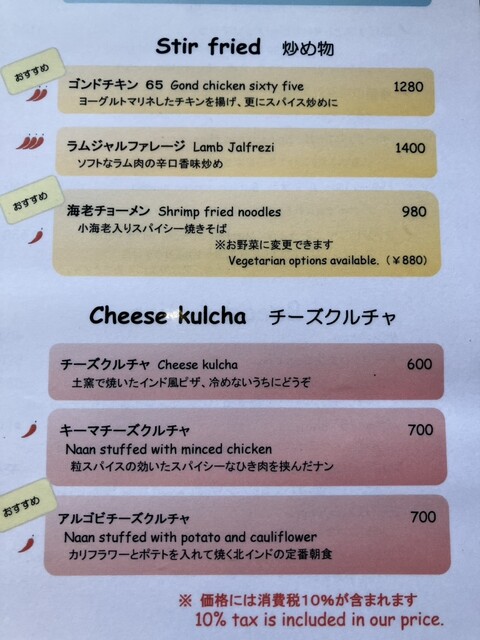 Stir fried 炒め物
おすすめ
ゴンドチキン 65 Gond chicken sixty five 1280
ヨーグルトマリネしたチキンを揚げ、更にスパイス炒めに
ラムジャルファレージ Lamb Jalfrezi 1400
ソフトなラム肉の辛口香味炒め
おすすめ
海老チョーメン Shrimp fried noodles 980
小海老入りスパイシー焼きそば
※お野菜に変更できます
Vegetarian options available. (￥880)
Cheese kulcha チーズクルチャ
チーズクルチャ Cheese kulcha 600
土窯で焼いたインド風ピザ、冷めないうちにどうぞ
キーマチーズクルチャ 700
Naan stuffed with minced chicken
粒スパイスの効いたスパイシーなひき肉を挟んだナン
おすすめ
アルゴビチーズクルチャ 700
Naan stuffed with potato and cauliflower
カリフラワーとポテトを入れて焼く北インドの定番朝食
※ 価格には消費税10%が含まれます
10% tax is included in our price.